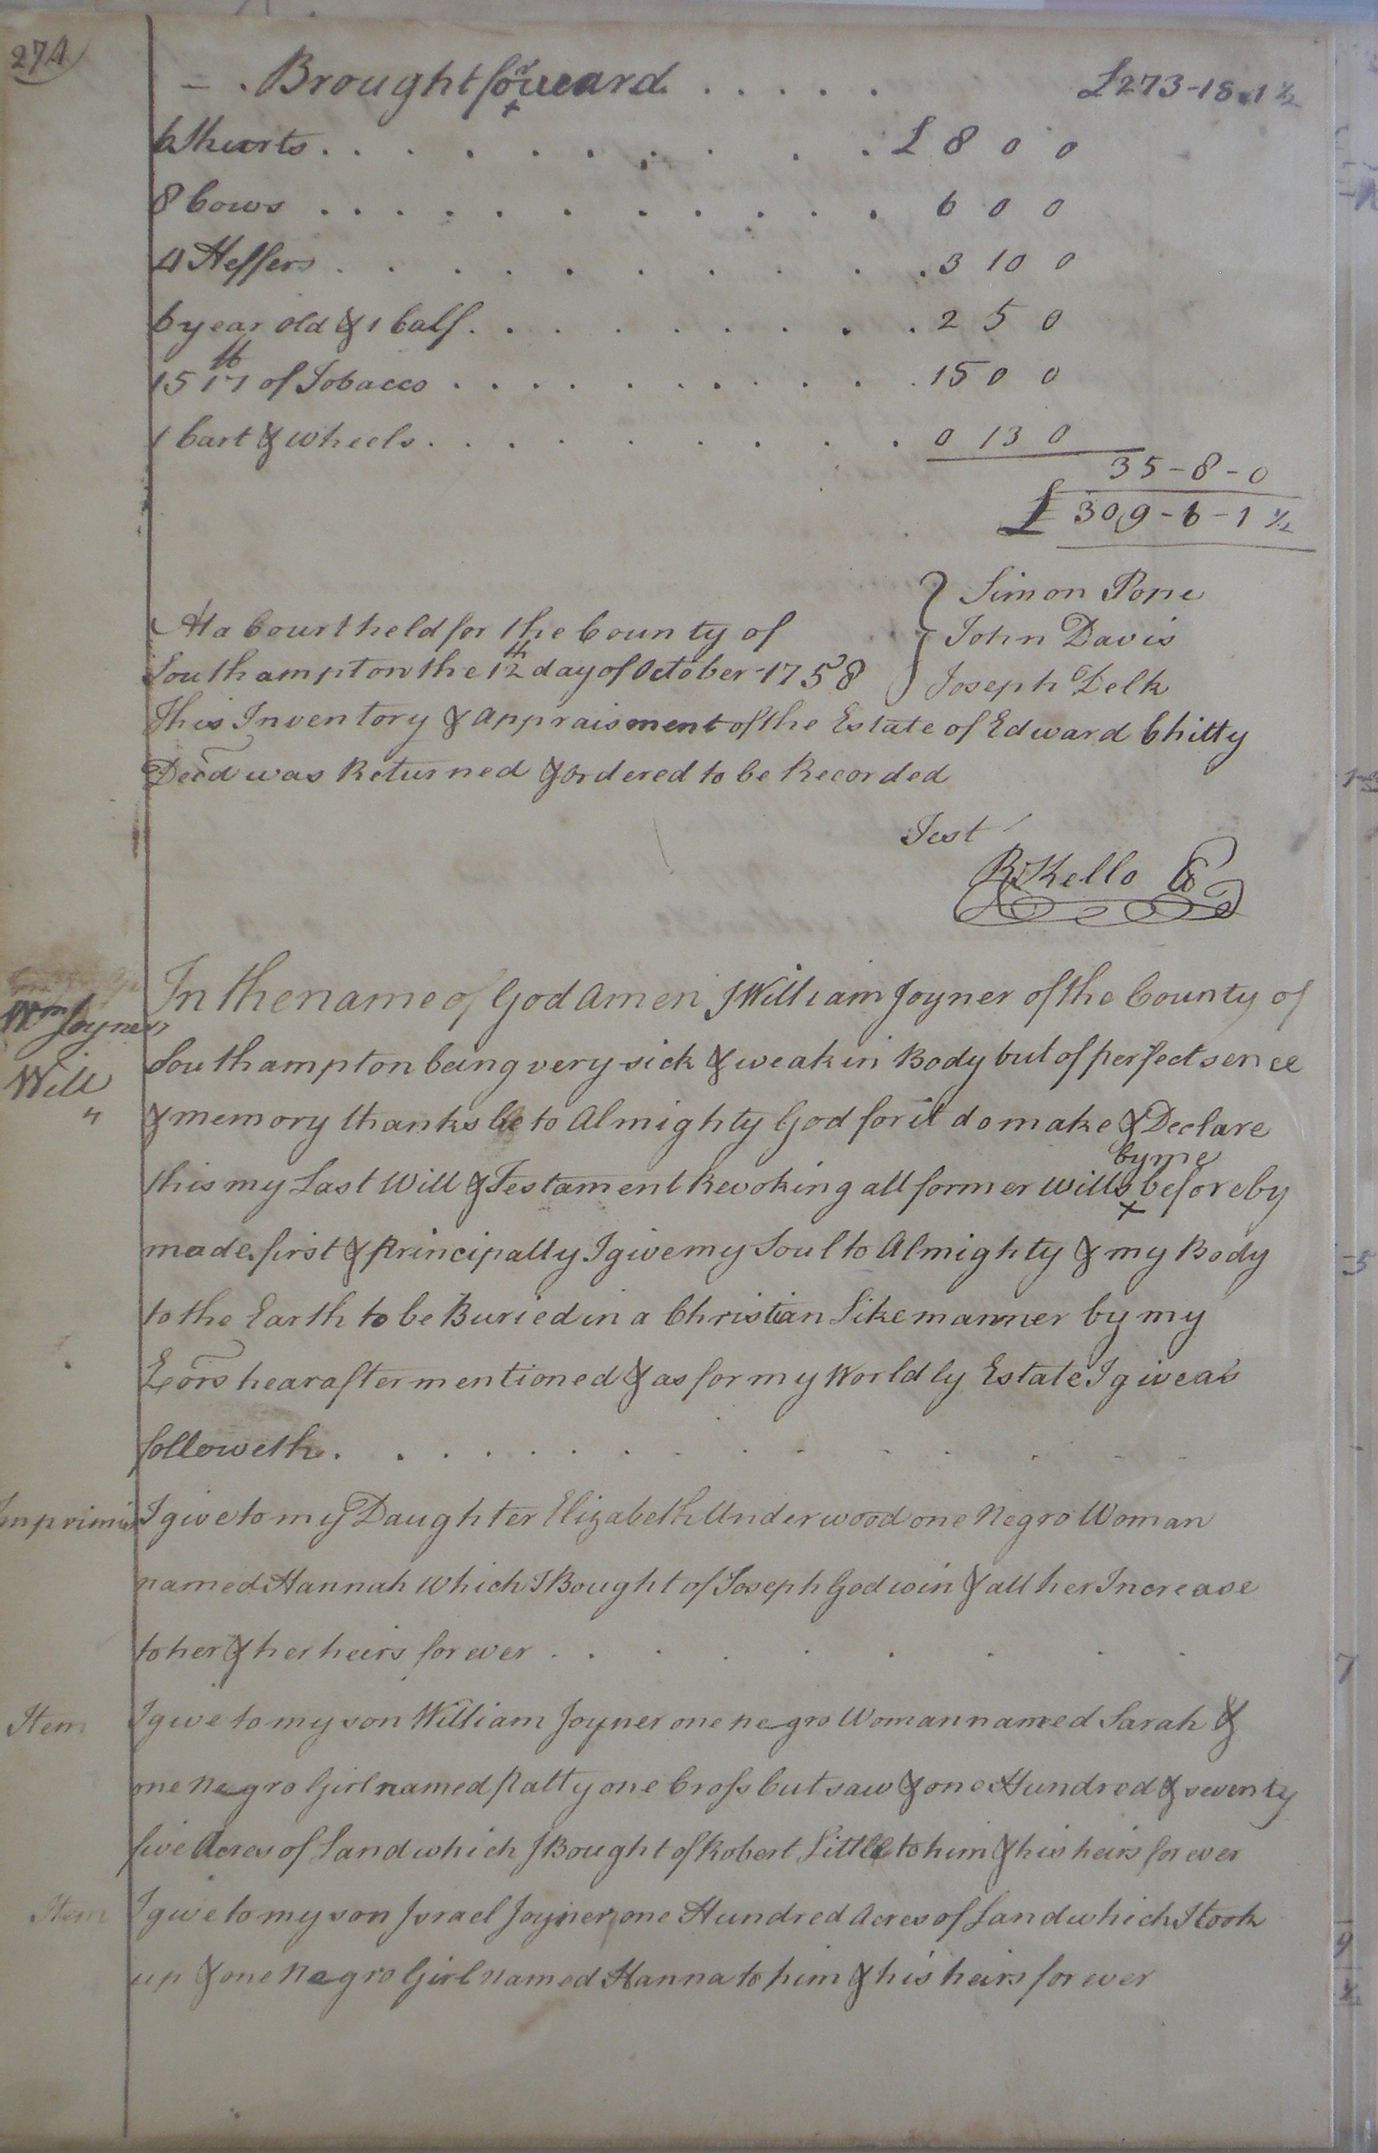 274
- . Brought forward . . . . . £273-18-1½
6 Shurts . . . . . . . . . . £ 8 0 0
8 Cows . . . . . . . . . . . 6 0 0
4 Heffers . . . . . . . . . . 3 10 0
6 year old & 1 Calf . . . . . . . . 2 5 0
15 of Tobacco . . . . . . . . . 15 0 0
1 Cart & wheels . . . . . . . . 0 13 0
35-8-0
£ 309-6-1½
Simon Pope
At a Court held for the County of
John Davis
Southampton the 12th day of October 1758
Joseph Delk
This Inventory & Appraisment of the Estate of Edward Chitty
Decd was Returned & Ordered to be Recorded
Test
R. Kello
Wm Joyners
Will
"
In the name of God Amen I William Joyner of the County of
Southampton being very sick & weak in Body but of perfect sence
& memory thanks be to Almighty God for it do make & Declare
by me
this my Last Will & Testament Revoking all former wills x beforeby
made first & Principally I give my Soul to Almighty & my Body
to the Earth to be Buried in a Christian Like manner by my
Exors hearafter mentioned & as for my Worldly Estate I give as
followeth . . . . . . . . . . . .
Imprimis I give to my Daughter Elizabeth Underwood one Negro Woman
named Hannah which I Bought of Joseph Godwin & all her Increase
to her & her heirs for ever . . . . . . . .
Item I give to my son William Joyner one negro Woman named Sarah &
one negro Girl named Patty one Cross Cut saw & one Hundred & seventy
five Acres of Land which I Bought of Robert Little to him & his heirs for ever
Item I give to my son Israel Joyner one Hundred Acres of Land which I took
up & one Negro Girl named Hanna to him & his heirs for ever